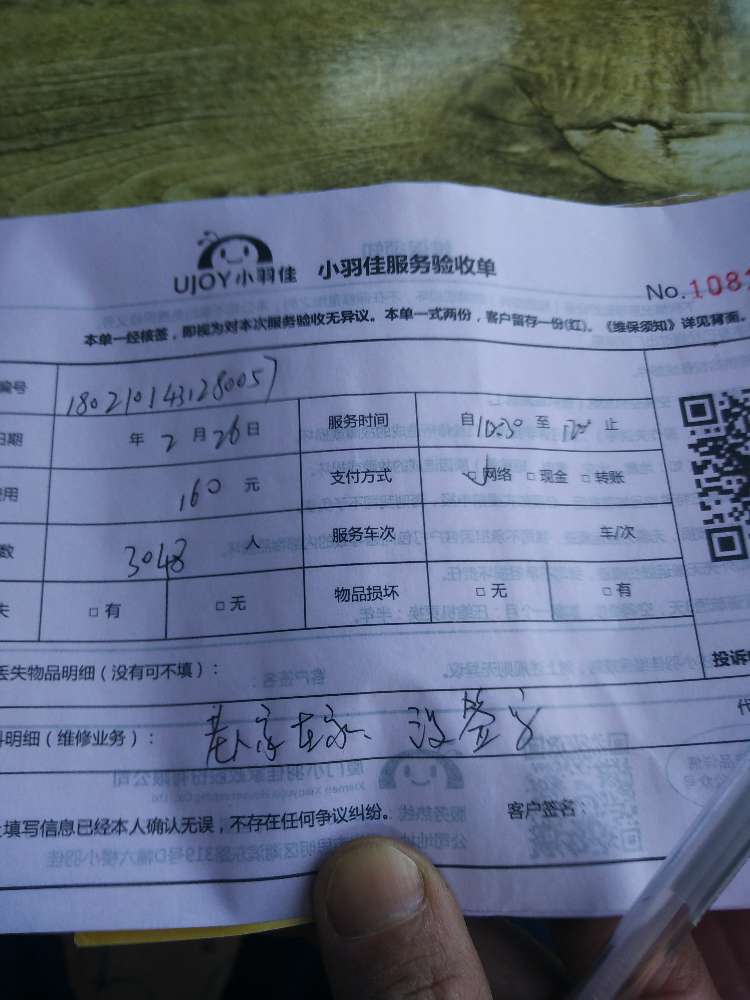 UJOY小羽佳 小羽佳服务验收单
No.108
本单一经核签，即视为对本次服务验收无异议。本单一式两份，客户留存一份(红)。《维保须知》详见背面。
编号 1802101431280057
日期 年 2 月 26 日 服务时间 自 10:30 至 止
费用 160 元 支付方式 □网络 □现金 □转账
数 3048 人 服务车次 车/次
失 □有 □无 物品损坏 □无 □有
丢失物品明细（没有可不填）：
投诉
料明细（维修业务）： 老人家在家 没签字
代
填写信息已经本人确认无误，不存在任何争议纠纷。 客户签名：